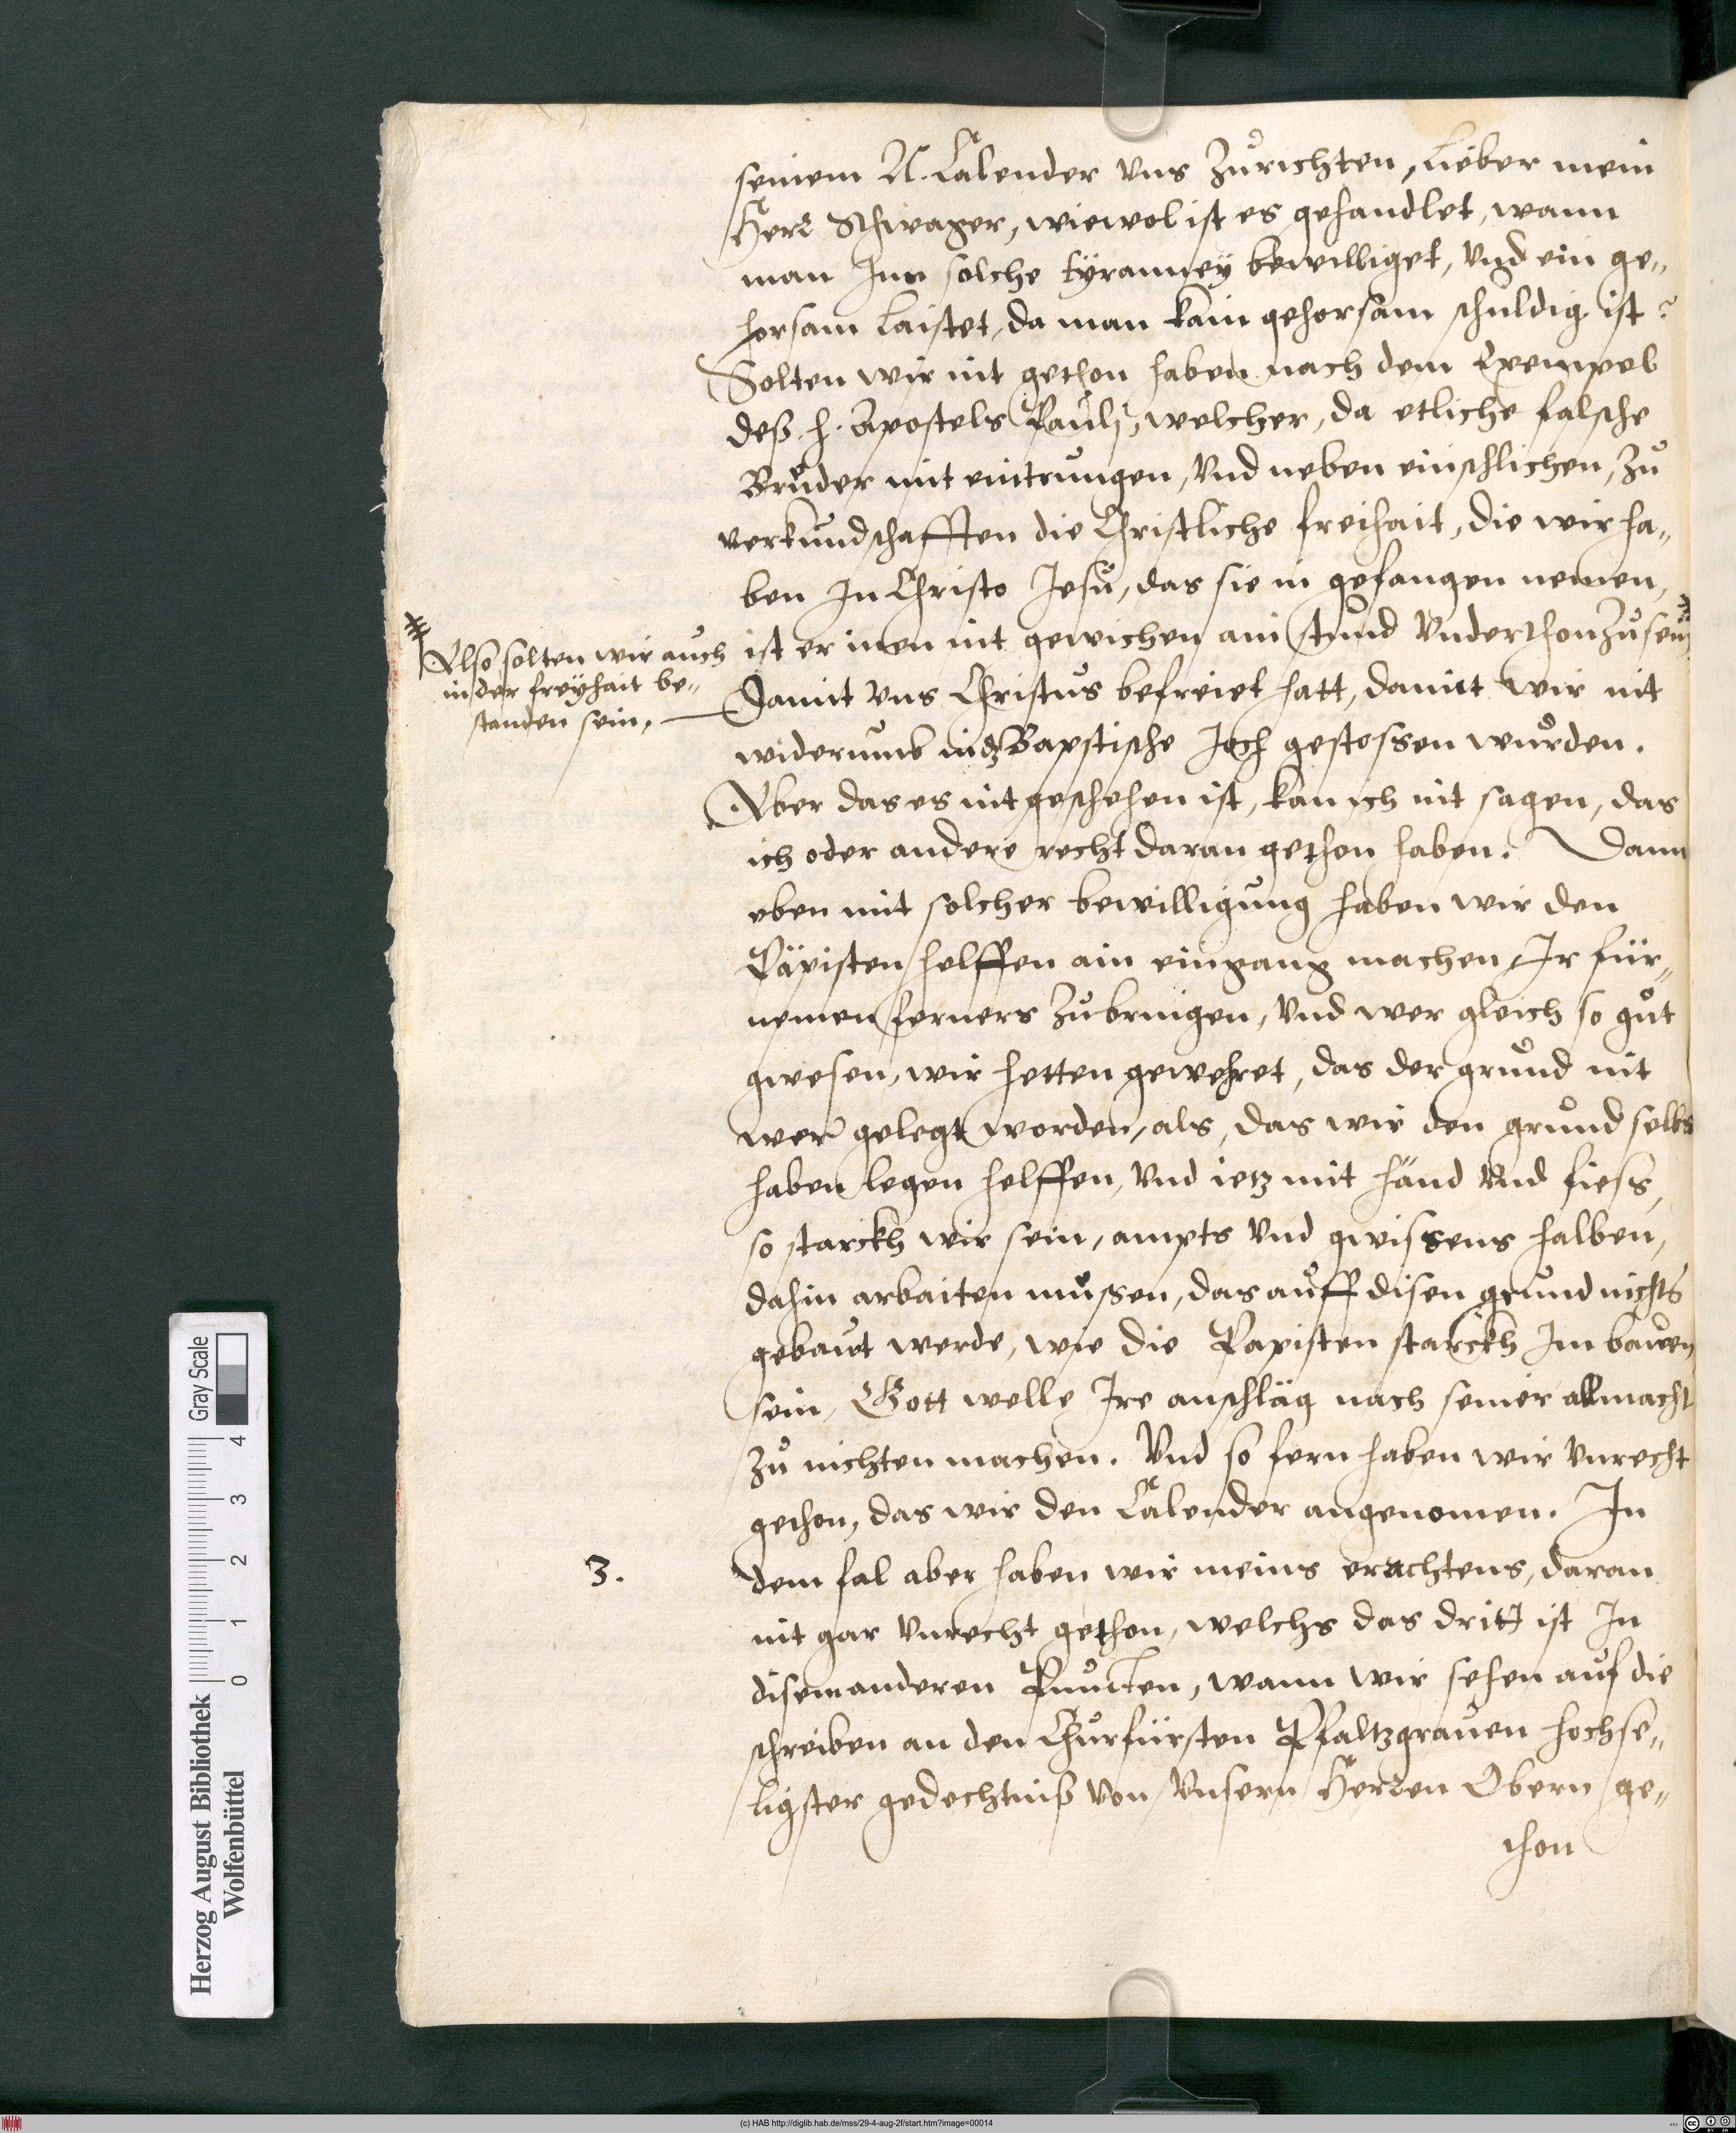 seinem N. Calender vns zůrichten, Lieber mein
Herr Schwager, wiewol ist es gehandlet, wann
man Inn solche tÿranneÿ bewilliget, vnd ein ge„
horsam laistet, da man kain gehorsam schuldig ist?
Solten wir nit gethon haben nach dem Exempel
deß h. Apostels Pauli, welcher, da etliche falsche
Brůder mit eintrungen, vnd neben einschlichen, zů
verkundschafften die Christliche freihait, die wir ha„
ben In Christo Jesu, das sie in gefangen nemen,
ist er inen nit gewichen ain stund vnderthon zusein
Also solten wir auch
in der freÿhait be„
standen sein,
Damit vns Christus befreiet hatt, damit wir nit
widerumb in dz Bapstische Joch gestossen wurden.
Aber das es nit geschehen ist, kan ich nit sagen, das
ich oder andere recht daran gethon haben. Dann
eben mit solcher bewilligung haben wir den
Päpisten helffen ain eingang machen Ir für„
nemen ferners zubringen, vnd wer gleich so gůt
gwesen, wir hetten gewehret, das der grund nit
wer gelegt worden, als, das wir den grund selbs
haben legen helffen, vnd ietz mit händ vnd fiess,
so starckh wir sein, ampts vnd gwissens halben,
dahin arbaiten mußen, das auff disen grund nichts
gebaut werde, wie die Papisten starckh Im bauen
sein, Gott welle Ire anschläg nach seiner allmacht
zů nichten machen. Vnd so fern haben wir vnrecht
gethon, das wir den Calender angenomen. In
3.
dem fal aber haben wir meins erachtens, daran
nit gar vnrecht gethon, welchs das dritt ist In
disem anderen Puncten, wann wir sehen auf die
schreiben an den Churfürsten Pfaltzgrauen hochse„
ligster gedechtniß von vnsern Herren Obern ge„
thon
Herzog August Bibliothek
Wolfenbüttel
0 1 2 3 4
Gray Scale
(c) HAB http://diglib.hab.de/mss/29-4-aug-2f/start.htm?image=00014